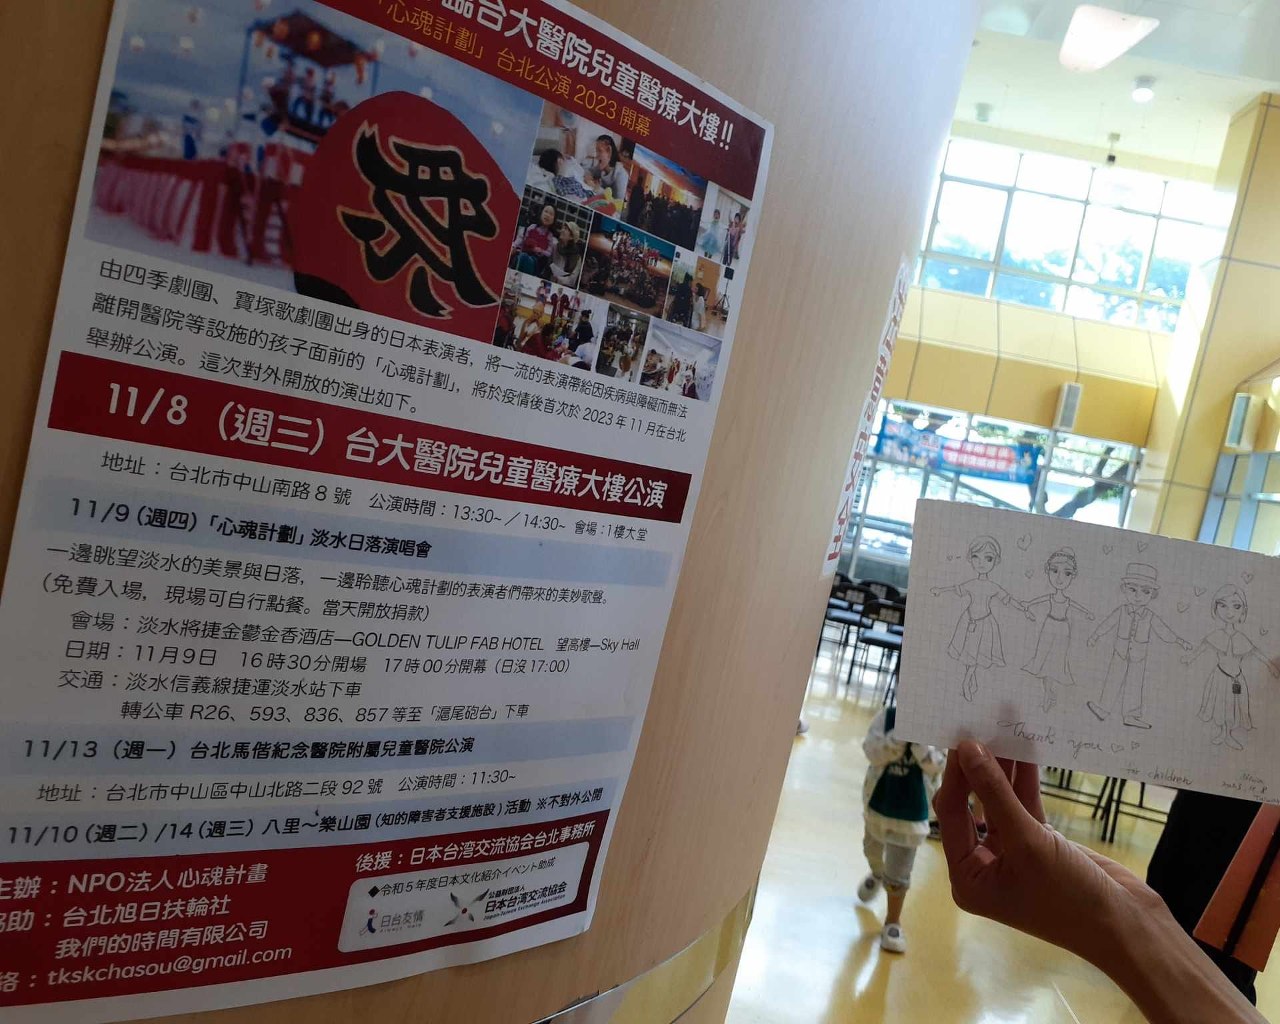 臨台大醫院兒童醫療大樓!!
「心魂計劃」台北公演 2023 開幕
祭
由四季劇團、寶塚歌劇團出身的日本表演者，將一流的表演帶給因疾病與障礙而無法
離開醫院等設施的孩子面前的「心魂計劃」，將於疫情後首次於 2023 年 11 月在台北
舉辦公演。這次對外開放的演出如下。
11/8 （週三）台大醫院兒童醫療大樓公演
地址：台北市中山南路 8 號 公演時間：13:30~／14:30~ 會場：1樓大堂
11/9 (週四)「心魂計劃」淡水日落演唱會
一邊眺望淡水的美景與日落，一邊聆聽心魂計劃的表演者們帶來的美妙歌聲。
(免費入場，現場可自行點餐。當天開放捐款)
會場：淡水將捷金鬱金香酒店—GOLDEN TULIP FAB HOTEL 望高樓—Sky Hall
日期：11月9日 16時30分開場 17時00分開幕（日沒 17:00）
交通：淡水信義線捷運淡水站下車
轉公車 R26、593、836、857 等至「滬尾砲台」下車
11/13（週一）台北馬偕紀念醫院附屬兒童醫院公演
地址：台北市中山區中山北路二段 92 號 公演時間：11:30~
11/10 (週二) /14 (週三) 八里～樂山園 (知的障害者支援施設) 活動 ※不對外公開
主辦：NPO法人心魂計畫
協助：台北旭日扶輪社
我們的時間有限公司
絡：tkskchasou@gmail.com
後援：日本台湾交流協会台北事務所
◆令和5年度日本文化紹介イベント助成
日台友情
公益財団法人
日本台湾交流協会
Japan-Taiwan Exchange Association
Thank you
for children